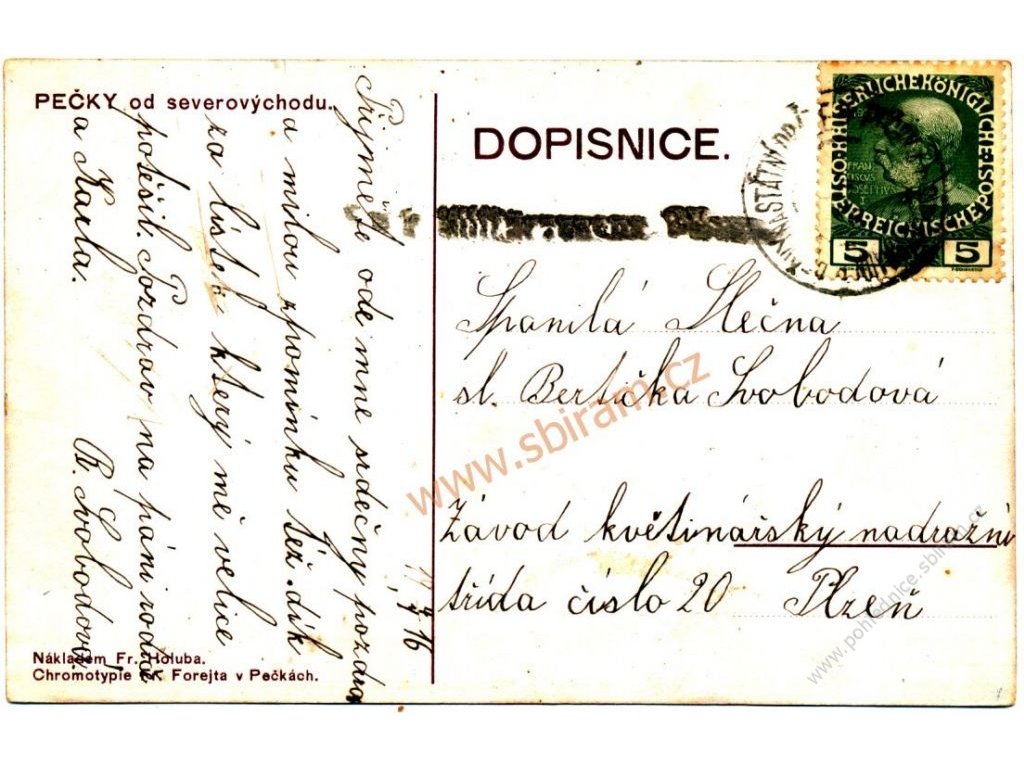 PEČKY od severovýchodu.
DOPISNICE.
Přijměte ode mne srdečný pozdrav
a milou zpomínku též dík
za lístek který mě velice
potěšil. Pozdrav na pání rodiče
a Karla.
B. Svobodová.
17, 7 16
Spanilá Slečna
sl. Bertička Svobodová
Závod květinářský nadražní
třída číslo 20 Plzeň
Nákladem Fr. Holuba.
Chromotypie Fr. Forejta v Pečkách.
KAISERLICHE KÖNIGLICHE
ÖSTERREICHISCHE POST
FRAN
CISCUS
JOSEPHUS
I
5 5
www.sbiram.cz
www.pohlednice.sbiram.cz